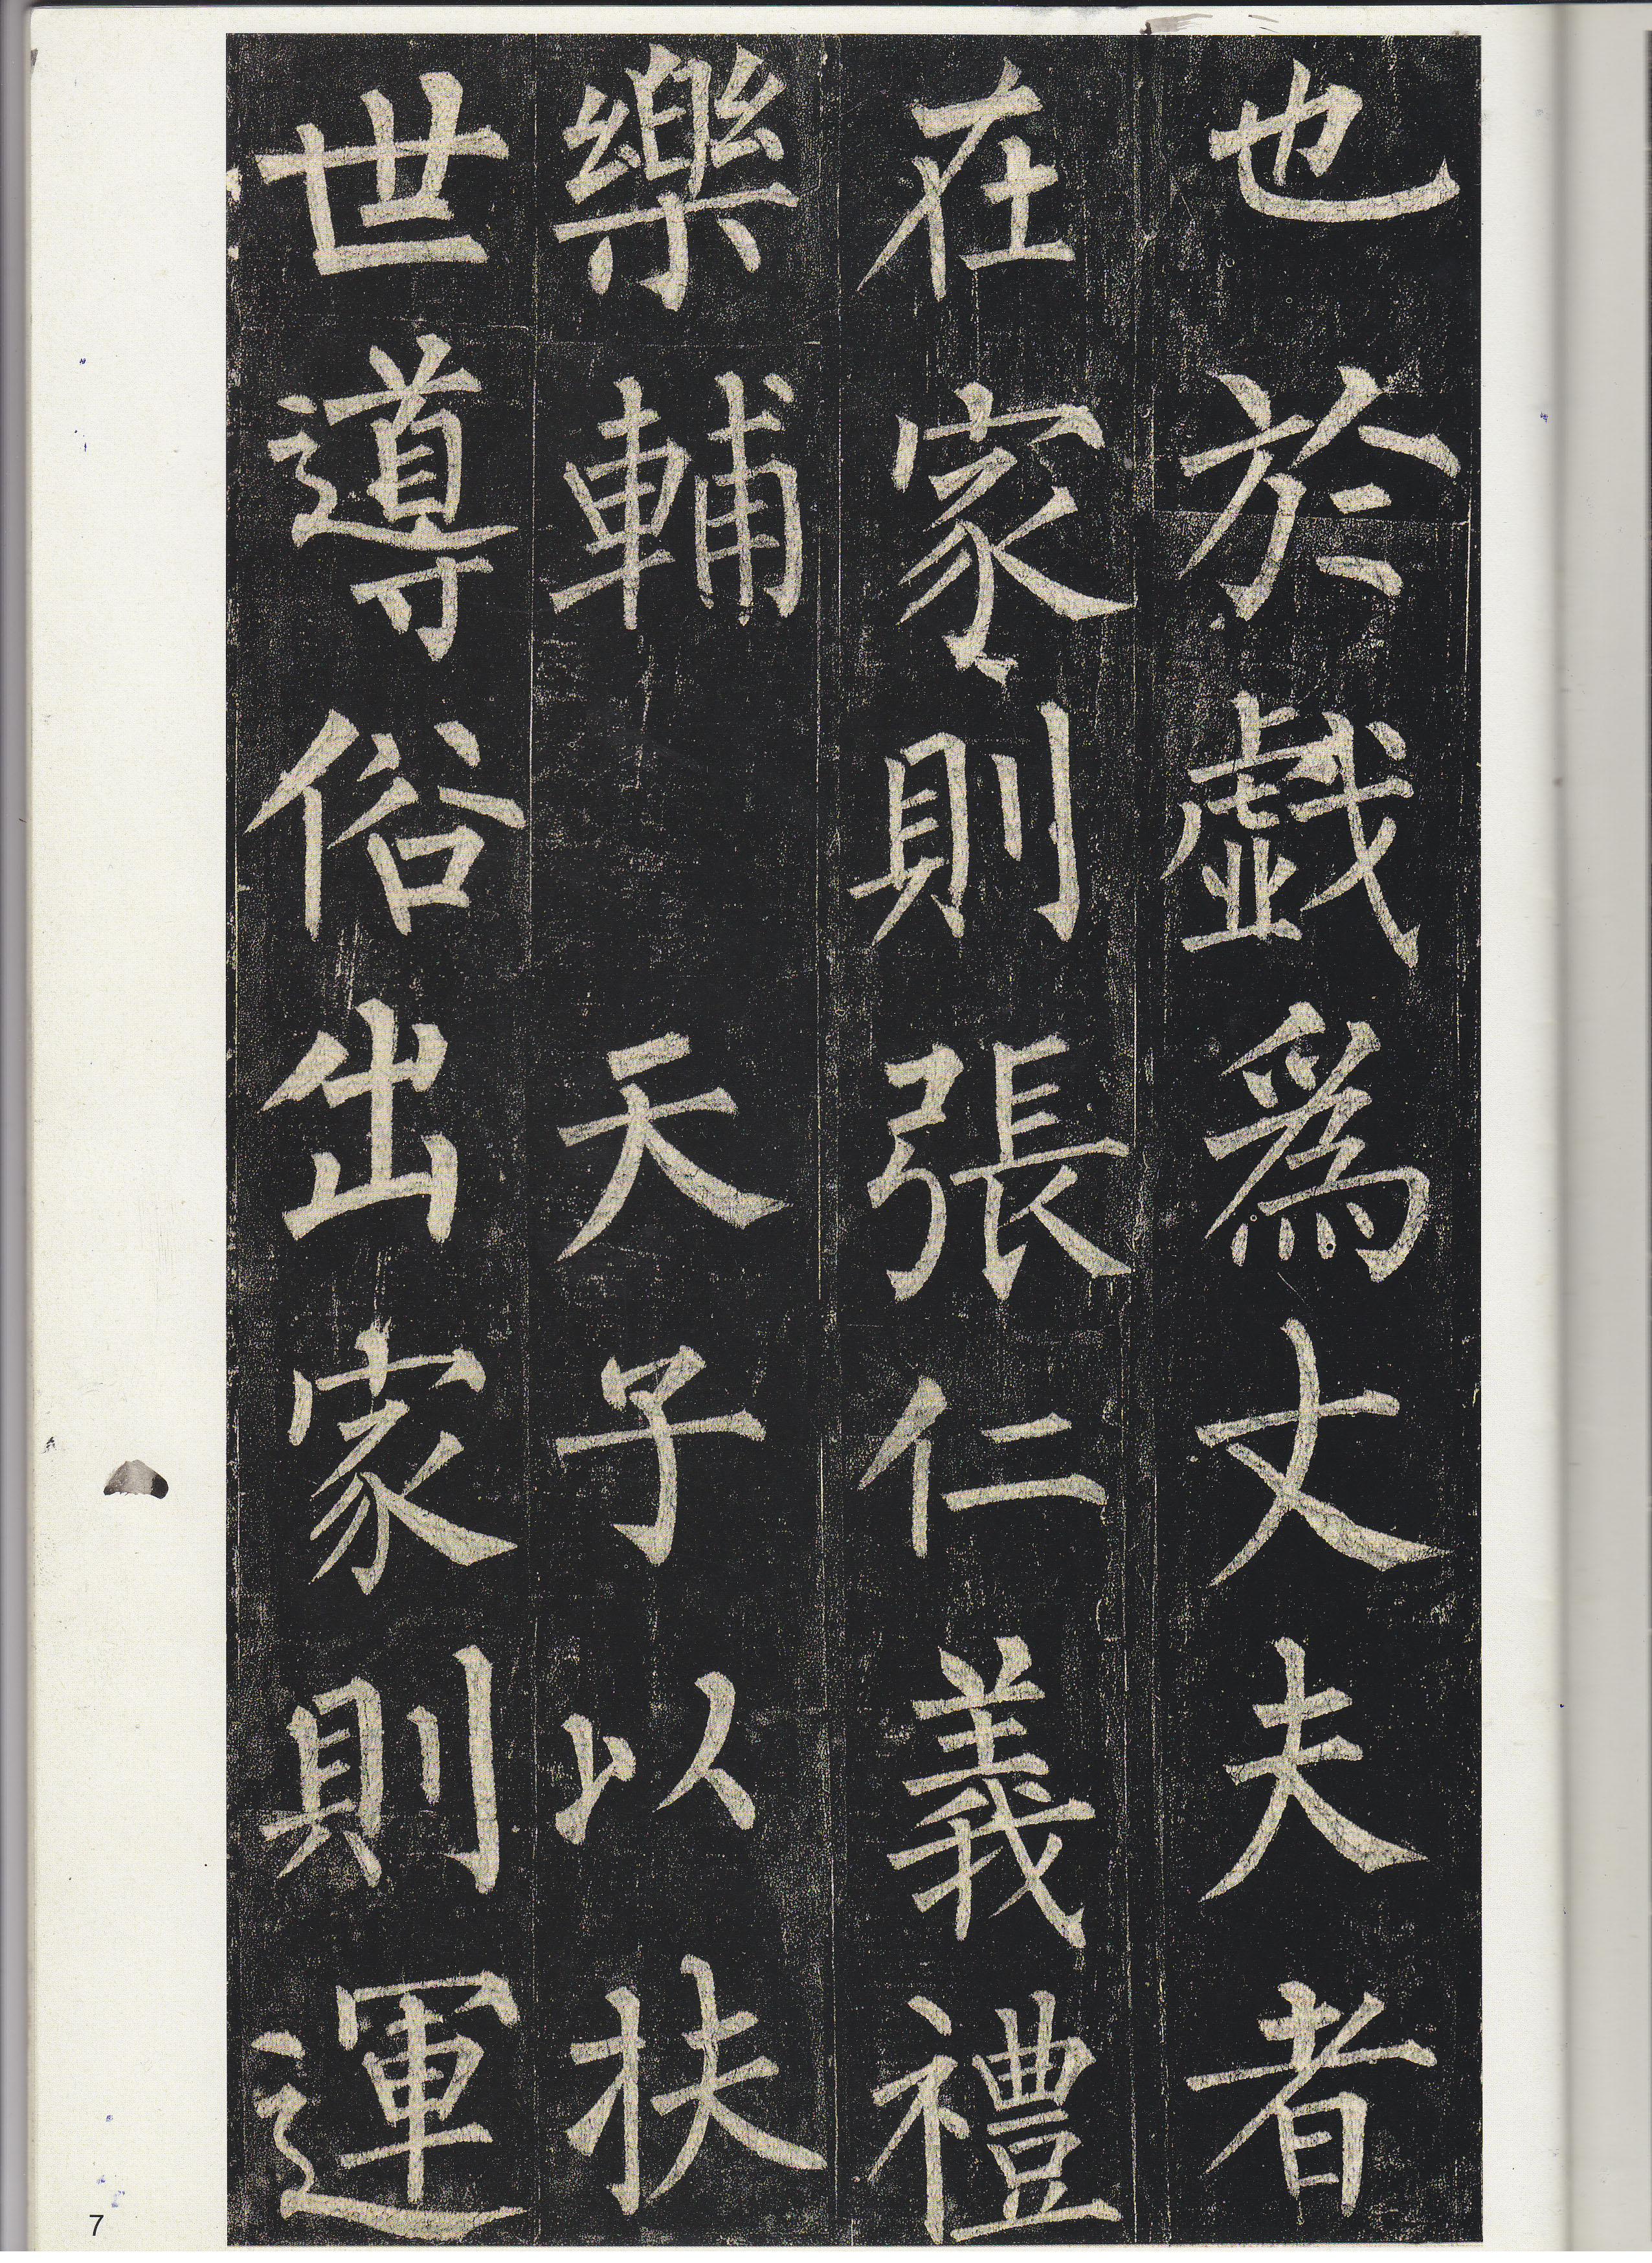 也於戱爲丈夫者
在家則張仁義禮
樂輔 天子以扶
世導俗出家則運
7